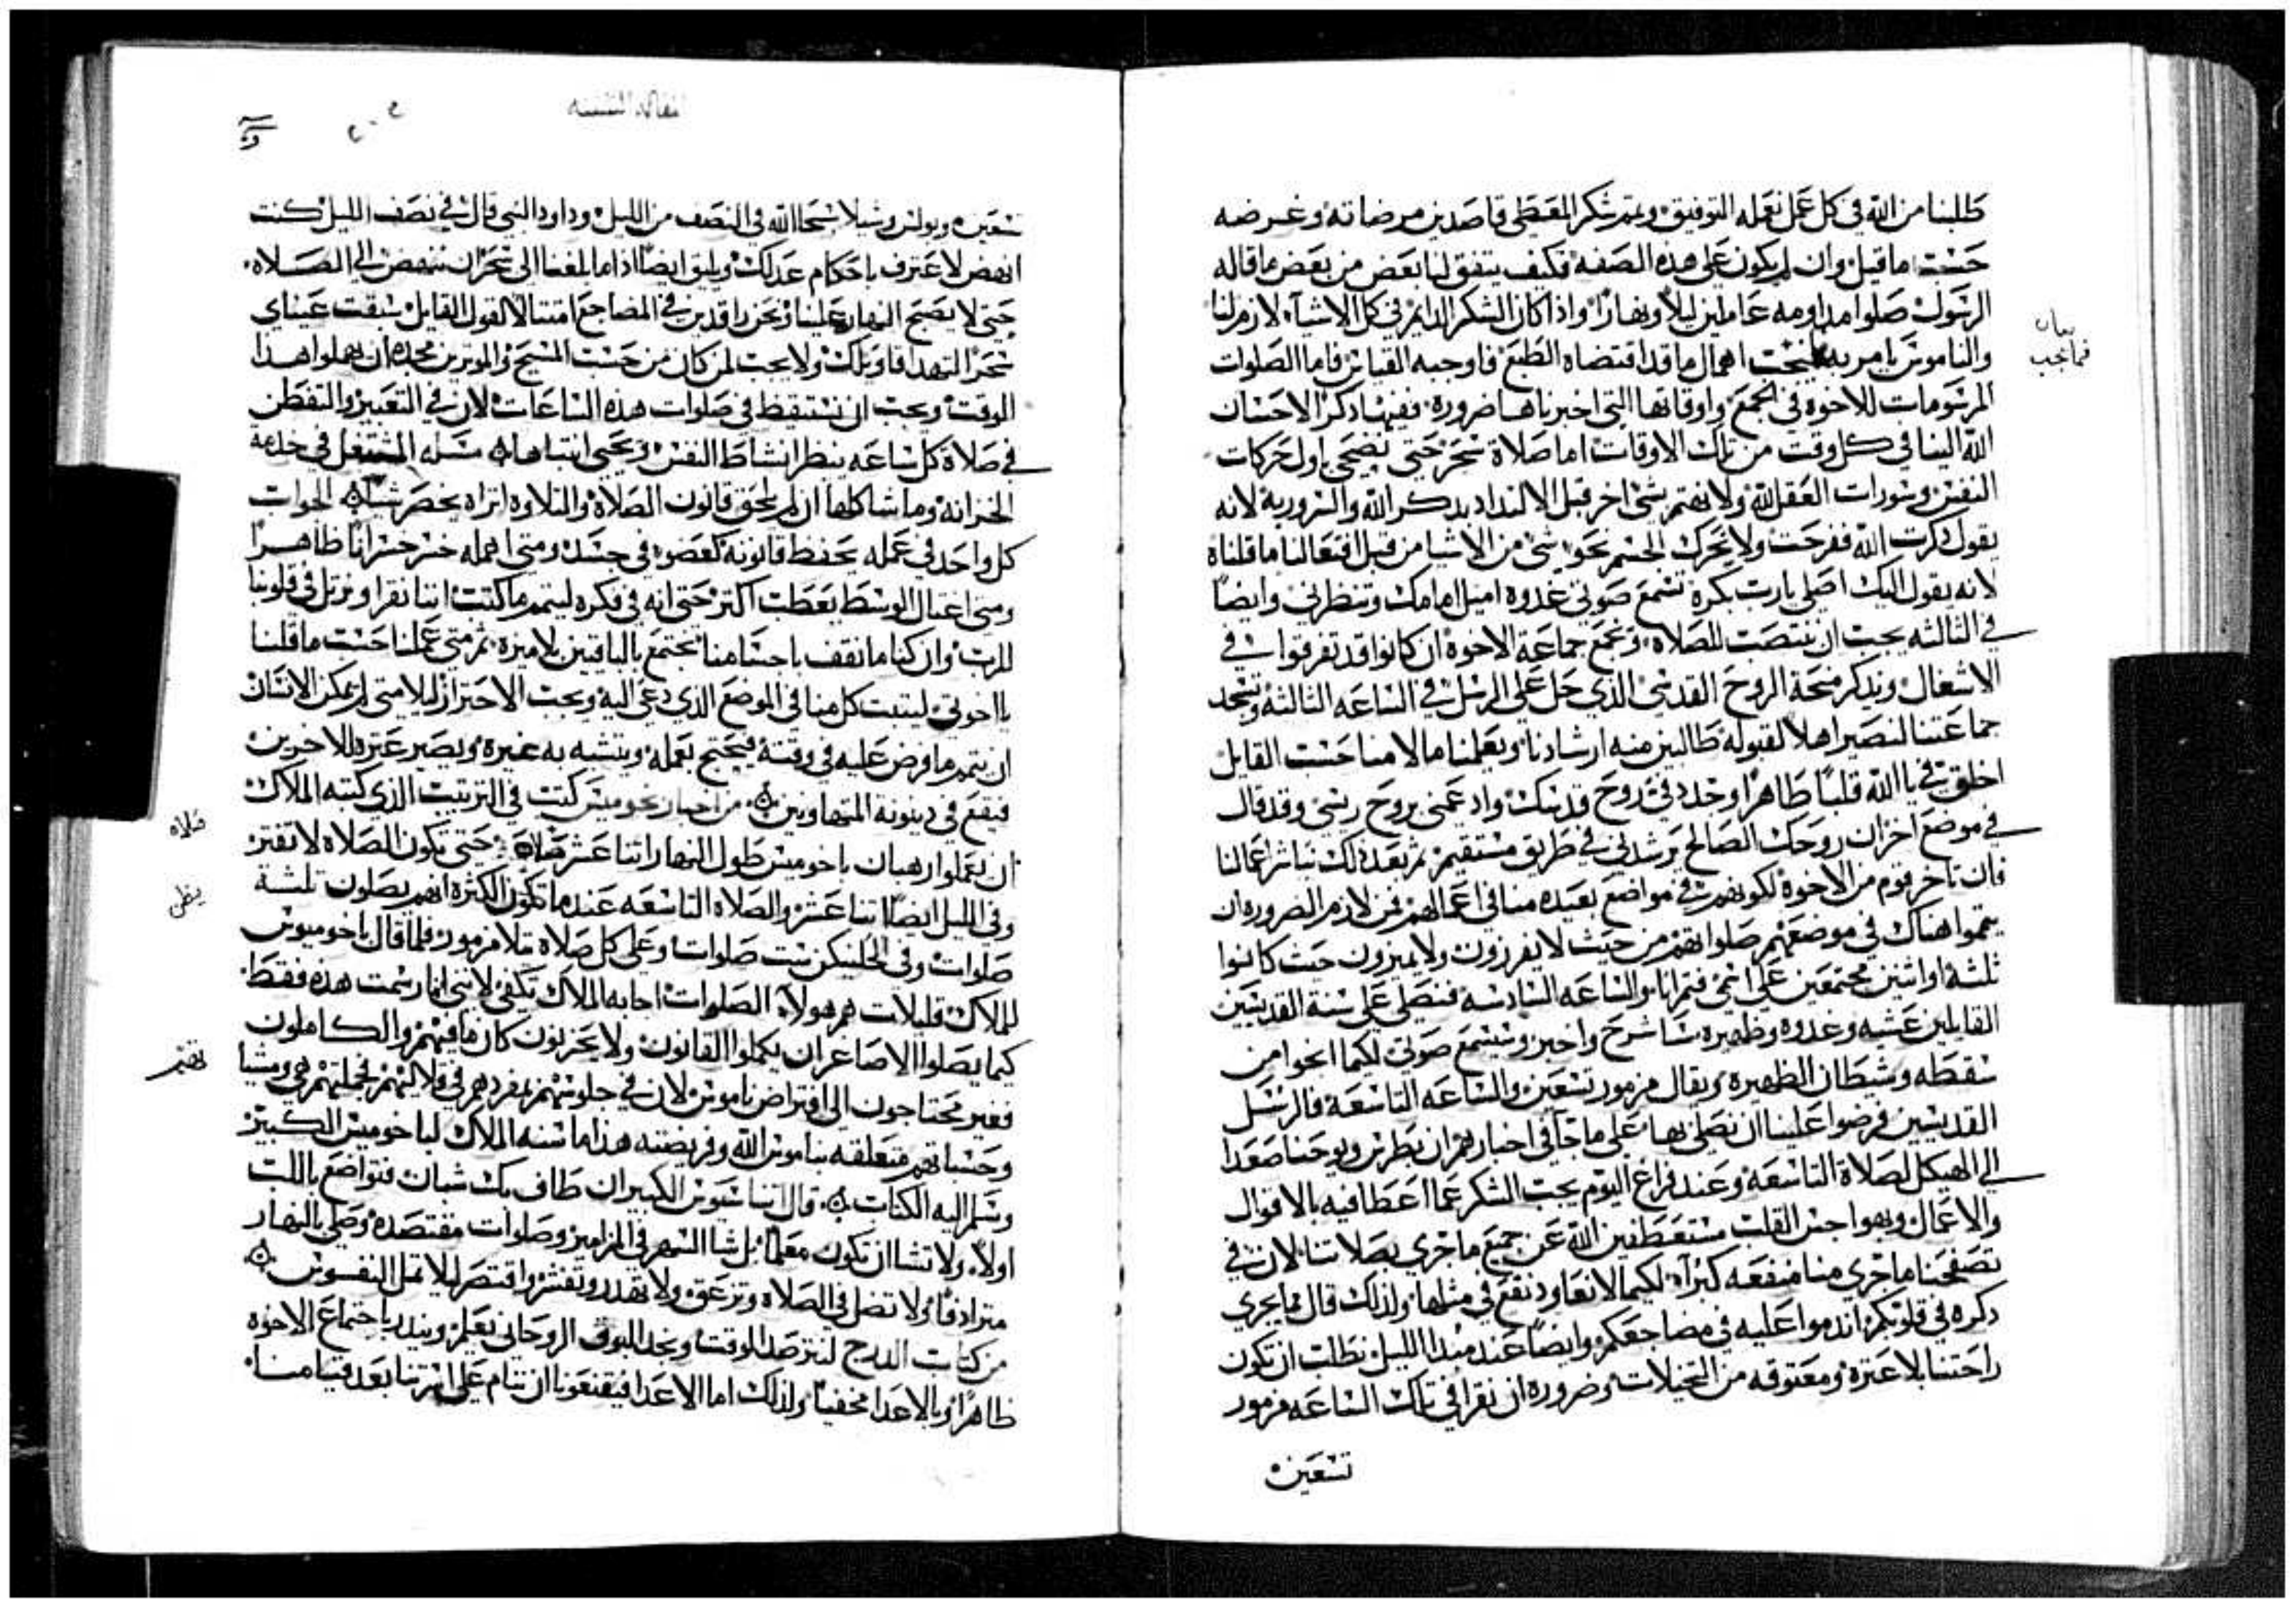 طلبنا من الله في كل عمل نعمله التوفيق ونتم شكر المعطي قاصدين مرضاته وغرضه
حسب ما قيل وان لم يكون علي هذه الصفه فكيف يتفق لنا بعض من بعض ما قاله
الرسول صلوا مداومه عاملين ليلا ونهارا واذا كان الشكر الدايم في كل الاشيآء لازم لنا
بيان
فما يجب
والناموس يامر به اهمال ما قد اقتضاه الطبع فاوجبه القياس فاما الصلوات
المرسومات للاخوه في الجمع واوقاتها التي اخبرناها ضروره ففيها ذكر الاحسان
الله الينا في كل وقت من تلك الاوقات اما صلاة سحر حتي نضحي باول حركات
النفس وثورات العقل لله ولا نهتم بشي اخر قبل الالتداد بدكر الله والسرور به لانه
يقول دكرت الله ففرحت ولا يحرك الجسم نحو شي من الاشيا من قبل افتعالنا ما قلناه
لانه يقول اليك اصلي يارب بكره تسمع صوتي غدوه امثل امامك وتنظرني وايضا
في الثالثه يجب ان ننتصب للصلاه ونجمع جماعة الاخوه ان كانوا قد تفرقوا في
الاشغال ونذكر منحة الروح القدس الذي حل علي الرسل في الساعه الثالثه ونسجد
جماعتنا لنصير اهلا لقبوله طالبين منه ارشادنا ويعلمنا ما لامنا حسب القايل
اخلق في يا الله قلبا طاهرا وجدد في روح قدسك وادعمني بروح ريسي وقد قال
في موضع اخر ان روحك الصالح يرشدني في طريق مستقيم ثم بعد ذلك نباشر اعمالنا
فان تاخر قوم من الاخوه لكونهم في مواضع بعيده منا في اعمالهم فمن لازم الضروره ان
يتموا هناك في موضعهم صلواتهم من حيث لا يفرزون ولا يميزون حيث كانوا
ثلثة او اثنين مجتمعين علي اسمي فثم انا والساعه السادسه فنصلي علي سنة القديسين
القايلين عشيه وغدوه وظهيره ساشرح واخبر وتسمع صوتي لكيما انجوا من
سقطه وشيطان الظهيره ويقال مزمور تسعين والساعه التاسعه فالرسل
القديسين فرضوا علينا ان نصلي بها علي ما جآ في اخبارهم ان بطرس ويوحنا صعدا
الي الهيكل لصلاة التاسعه وعند فراغ اليوم يجب الشكر عما اعطا فيه بالاقوال
والاعمال وبهواجس القلب مستعطفين الله عن جميع ما جري بصلاتنا لان في
تصفحنا ما جري منا منفعه كبرآ لكيما لا نعاود نقع في مثلها ولذلك قال فما يجري
دكره في قلوبكم اندموا عليه في مضاجعكم وايضا عند مبدا الليل نطلب ان تكون
راحتنا بلا عثره ومعتوقه من التخيلات وضروره ان نقرا في تلك الساعه مزمور
تسعين
تسعين وبولس وشيلا سبحا الله في النصف من الليل وداود النبي قال في نصف الليل كنت
انهض لاعترف باحكام عدلك ويليق ايضا اذا ما بلغنا الي سحر ان ننهض الي الصلاه
حتي لا يصبح النهار علينا ونحن راقدين في المضاجع امتثالا لقول القايل سبقت عيناي
سحرا لتهدا اقاويلك ولا يجب لمن كان من حسب المسيح والموثرين مجده ان يهملوا هذا
الوقت ويجب ان نستيقظ في صلوات هذه الساعات لان في التعبير والتفطن
في صلاة كل ساعه ينظر انشاط النفس ويحيي انتباهها مسله المشتغل في خدمه
الخزانه وما شاكلها ان لم يلحق قانون الصلاة والتلاوه اتراه يخصر شيا الجواب
كل واحد في عمله يحفظ قانونه كعضو في جسد ومتي اهمله خسر خسرانا ظاهرا
ومتي اغتال الوسط يعطب اكثر حتي انه في فكره ليتمم ما كتب اننا نقرا ونرتل في قلوبنا
للرب وان كنا ما نقف باجسامنا نجتمع بالباقين بلا ميزه ثم متي عملنا حسب ما قلنا
يا اخوتي ليتبت كل منا في الموضع الذي دعي اليه ويجب الاحتراز ليلا متي لم يمكن الانسان
ان يتمم ما فرض عليه في وقته فيحتج بعمله ويتشبه به غيره ويصير عثره للاخرين
فيقع في دينونة المتهاونين من اخبار بخوميس كتب في الترتيب الذي كتبه الملاك
ان يعملوا رهبان باخوميس طول النهار اتنا عشر صلاة حتي تكون الصلاه لا تفتر
وفي الليل ايضا اتنا عشر والصلاه التاسعه عندما تكون الكثره انهم يصلون ثلثة
صلوات وفي الخلنيكن ست صلوات وعلي كل صلاة تلا مزمور فلما قال باخوميوس
للملاك قليلات هم هولآ الصلوات اجابه الملاك تكفي لانني انما رسمت هذه فقط
كيما يصلوا الاصاغر ان يكملوا القانون ولا يحزنون كان ما فيهم والكاملون
فغير محتاجون الي افتراض ناموس لان في جلوسهم بمفردهم في قلاليهم بجملتهم هي ومشيا
وحسباتهم متعلقه بناموس الله وفريضته هذا ما سنه الملاك لباخوميس الكبير
وسلم اليه الكتاب قال اتناسيوس الكبير ان طاف بك شبان فتواضع باللب
اولا ولا تشا ان تكون معلما بل شا السهر في المزامير وصلوات مقتصده وصلي بالنهار
مترادفا ولا تضل في الصلاه وتزعق ولا تهدر وتفتش واقتصر ليلا تمل النفوس
من كتاب الدرج لنترصد الوقت ونجد البوق الروحاني نعلم وينذر باجتماع الاخوه
ظاهرا وبالاعدا مخفيا ولذلك اما الاعدا فيقنعونا ان ننام علي اسرتنا بعد قيامنا